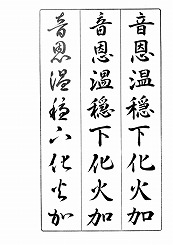 音恩温穩下化火加
音恩温穩下化火加
音恩温穩下化火加